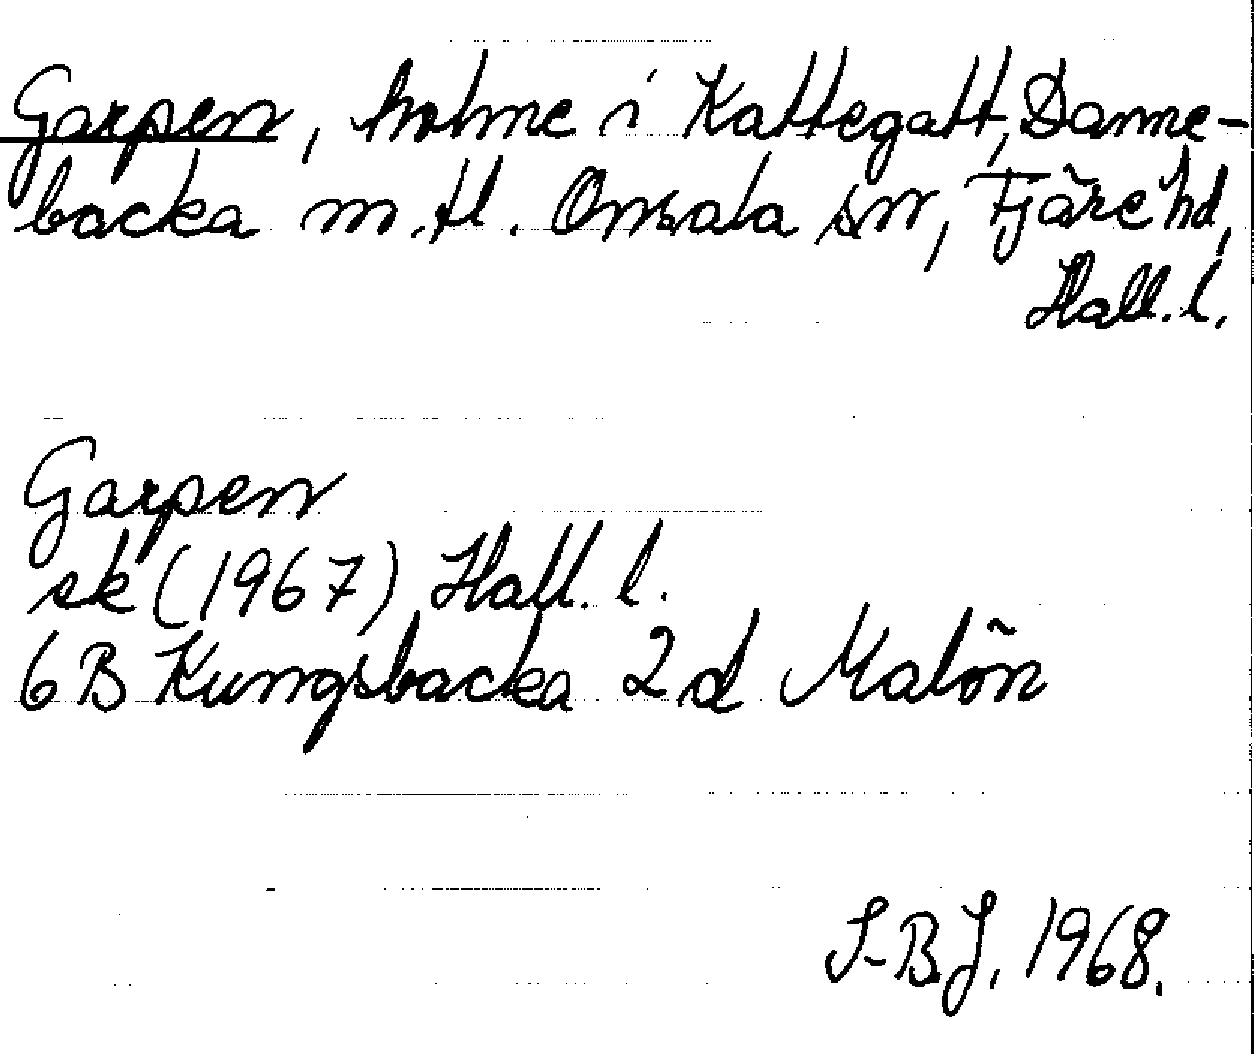 Garpen, holme i Kattegatt, Danne-
backa m.fl. Onsala sn, Fjäre hd,
Hall. l.
Garpen
sk (1967) Hall. l.
6B Kungsbacka 2d Malön
S-BJ, 1968.